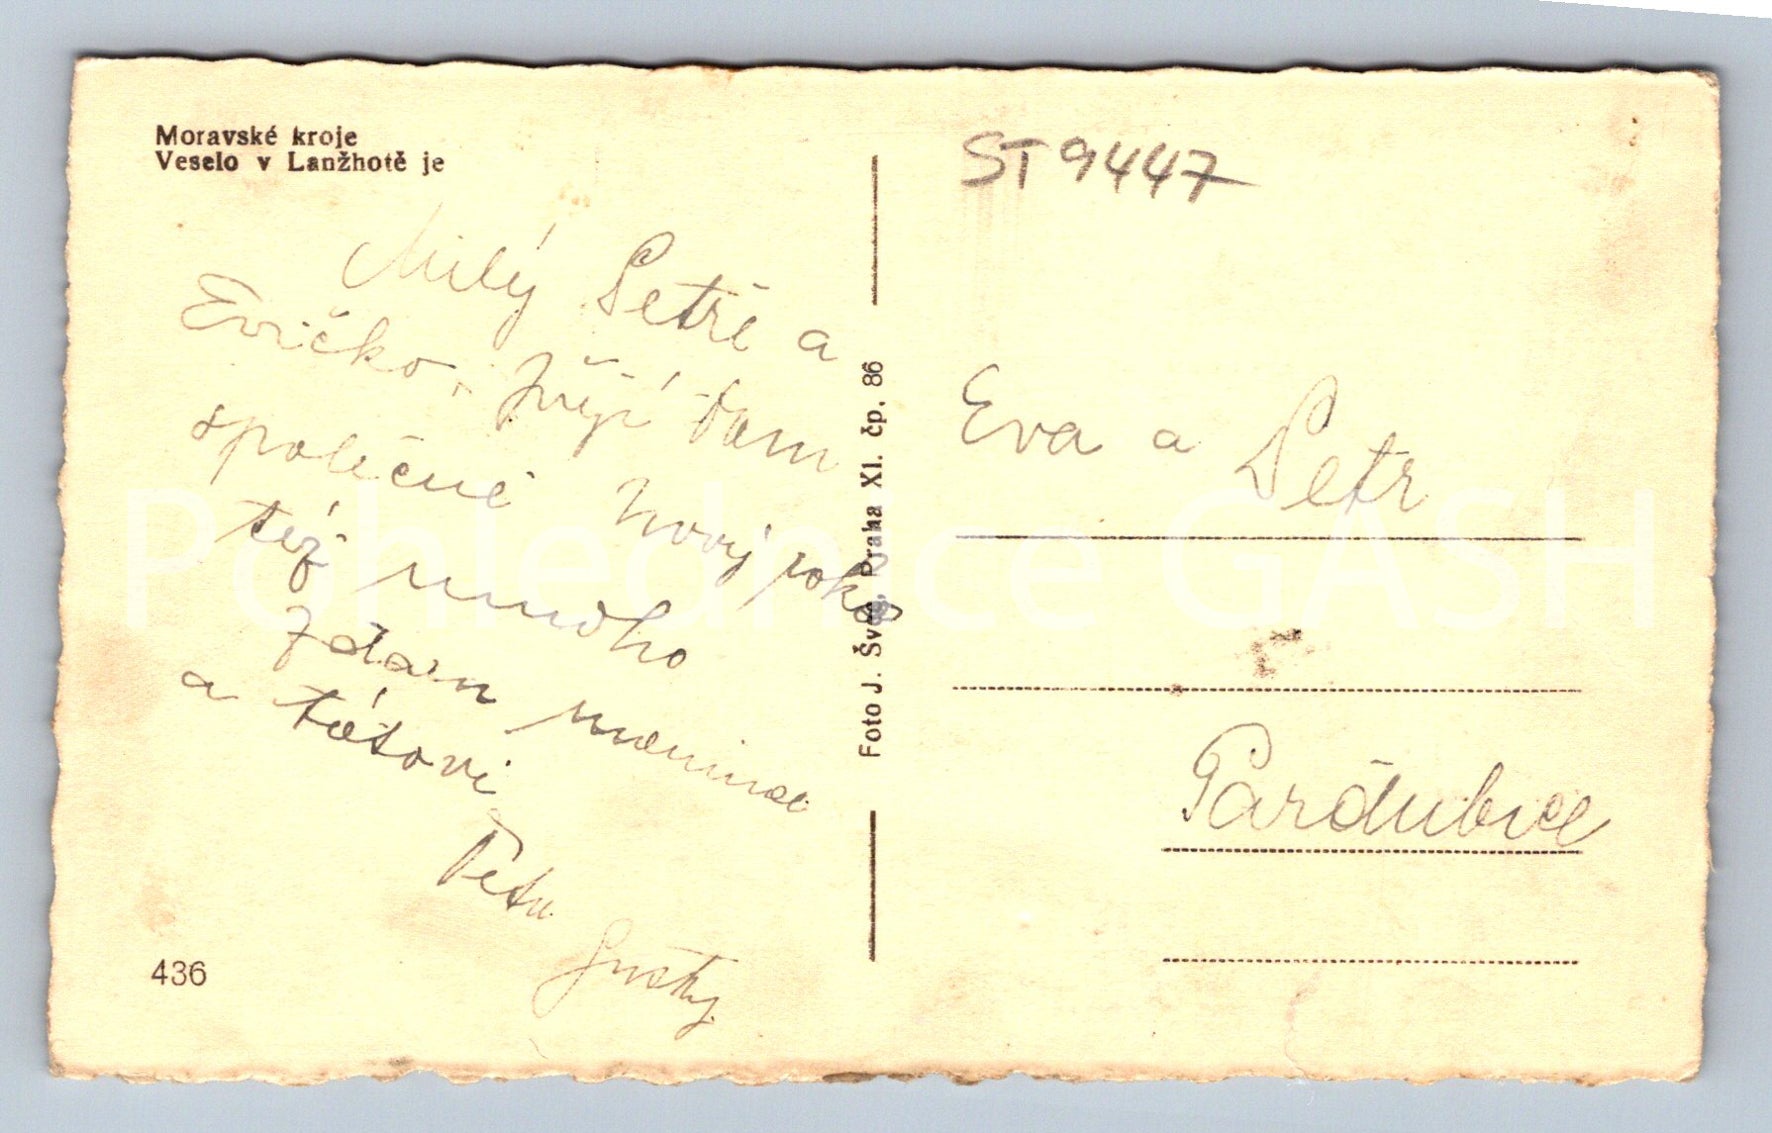 Moravské kroje
Veselo v Lanžhotě je
ST9447
Milý Petře a
Evičko,
společně Nový rok
též mnoho
zdar mamince
a tátovi
Teta
Gusty
Foto J. Švec, Praha XI. čp. 86
Eva a Petr
Pardubice
436
Pohlednice GASH